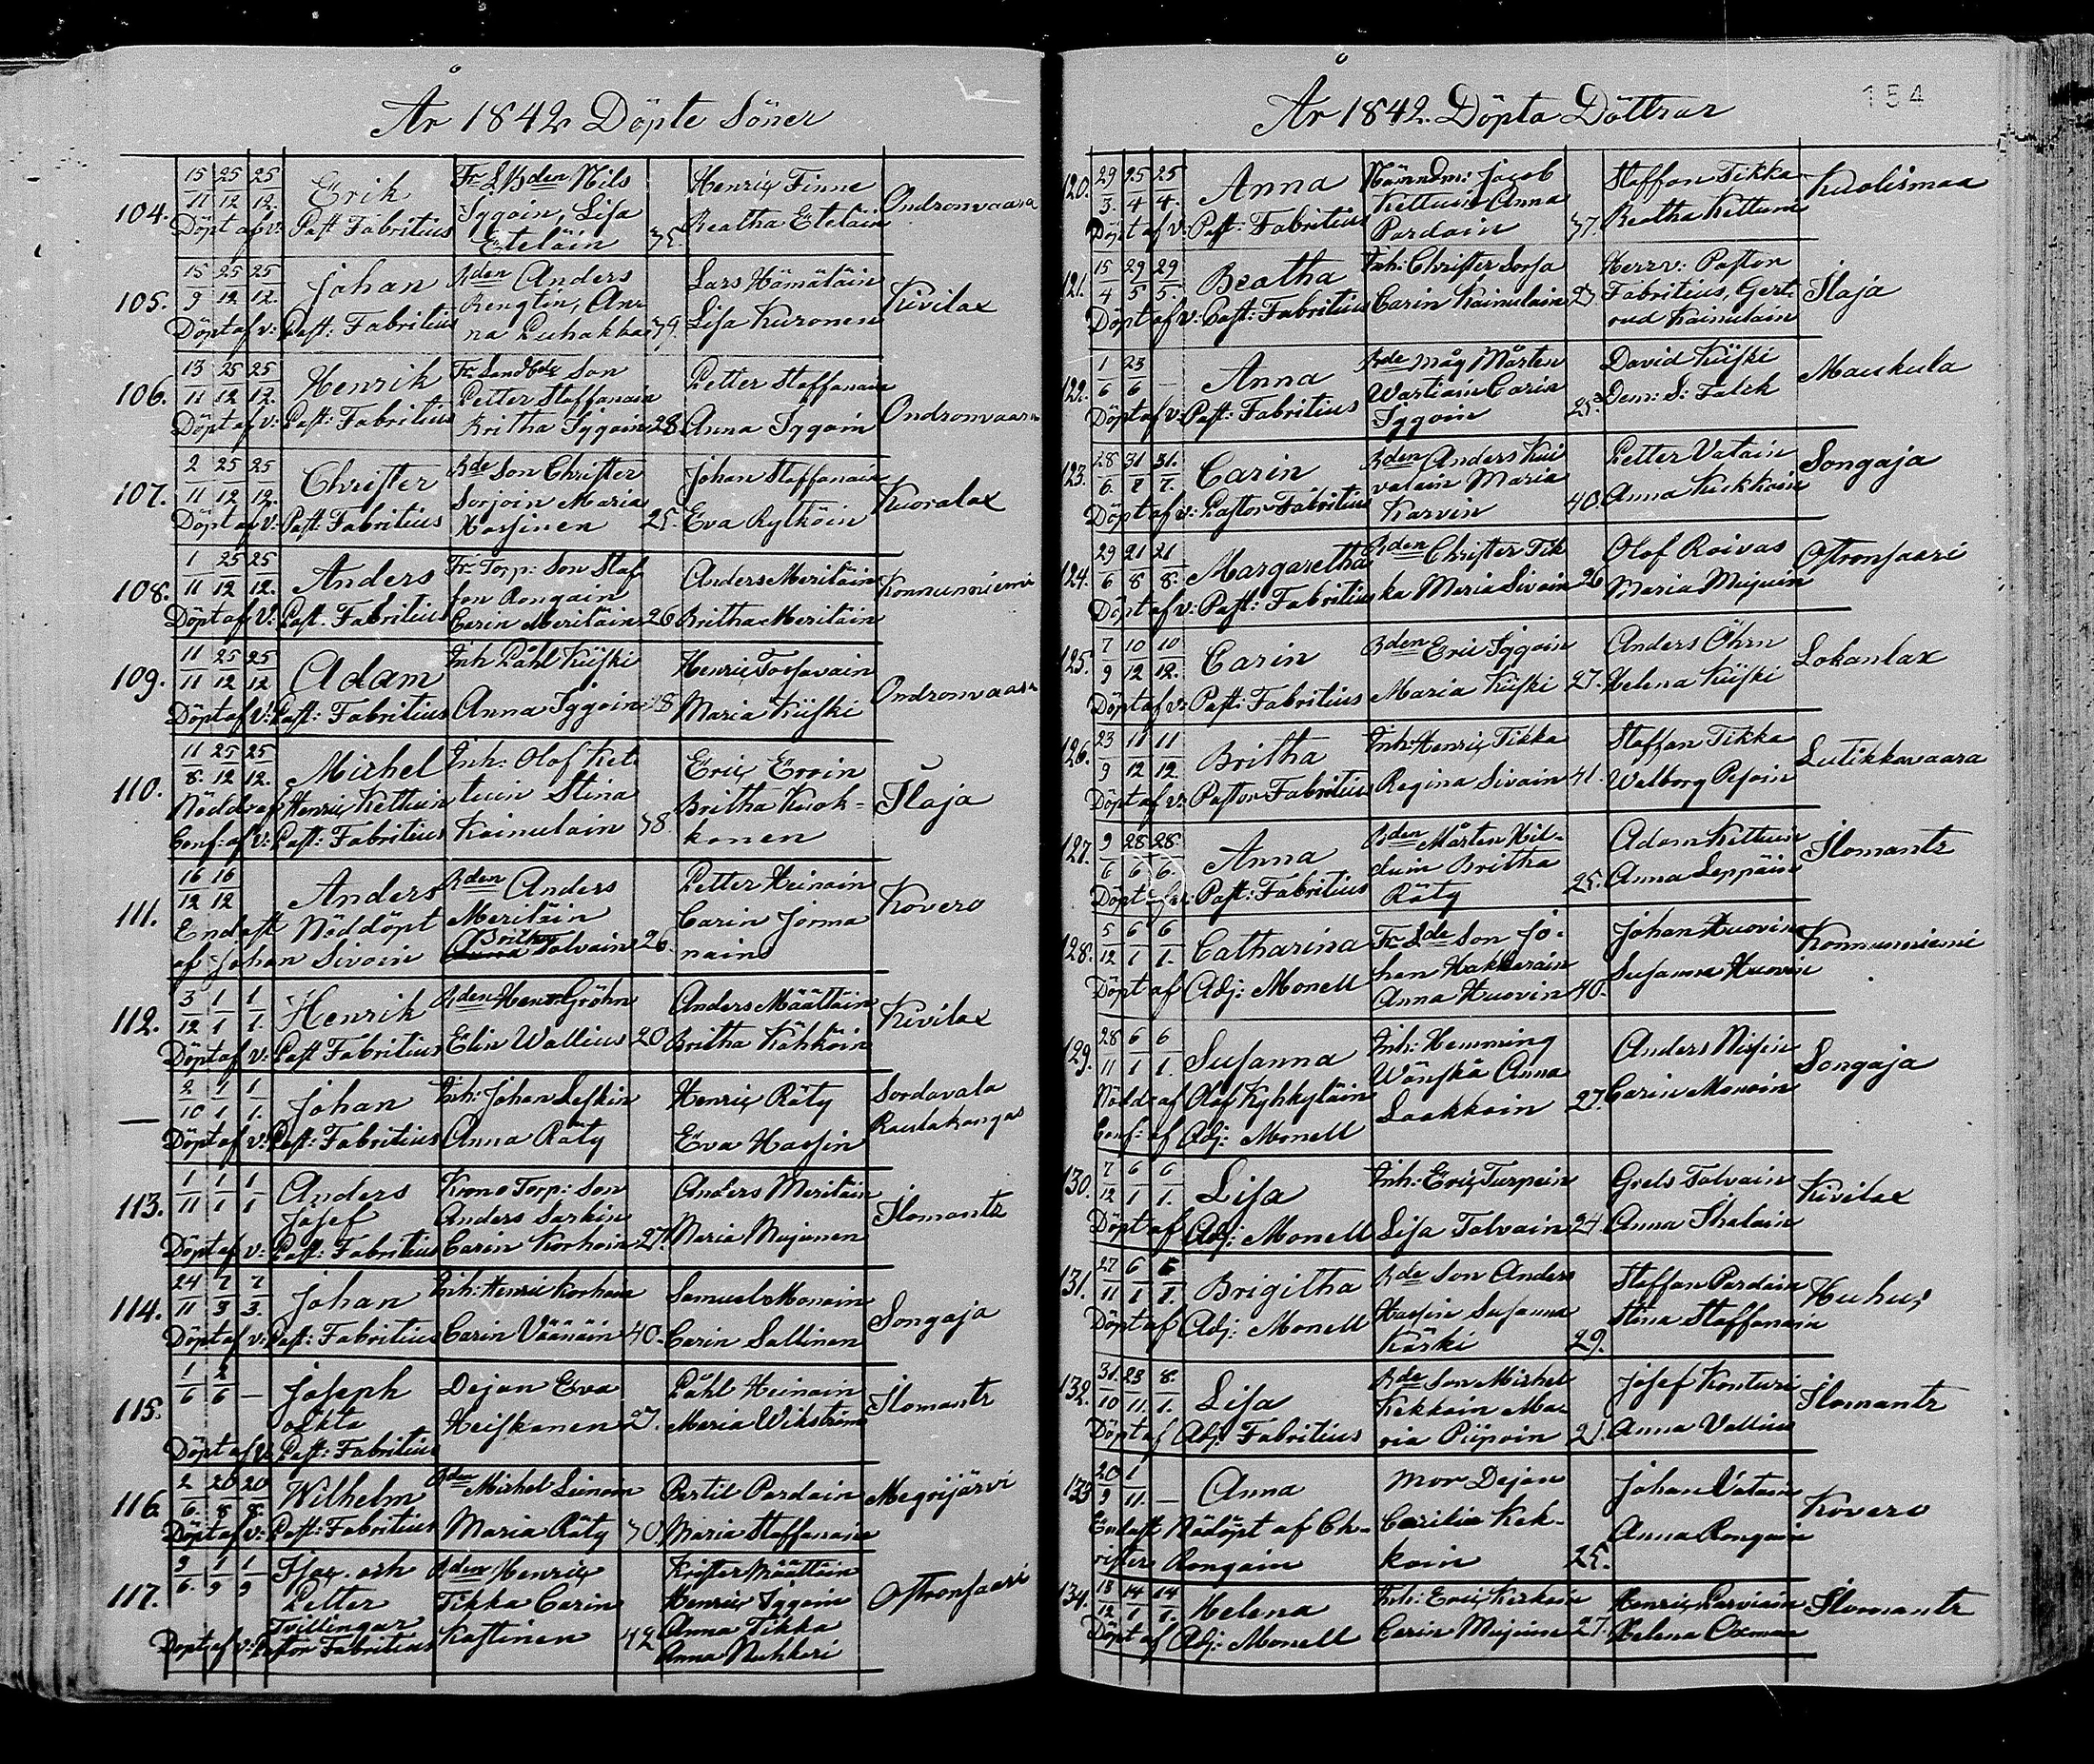 År 1842 Döpte Söner
104. 15/11 25/12 25/12. Erik Fr. L. Bden Nils Iggoin, Lisa Eteläin 35. Henric Finne Beatha Eteläin Ondronvaara
Döpt af v: Past Fabritius
105. 15/9 25/12 25/12. Johan Bden Anders Bengtin, Anna Puhakka 39. Lars Hämäläin Lisa Kuronen Kivilax
Döpt af v: Past: Fabritius
106. 13/11 25/12 25/12. Henrik Petter Staffanain Britha Iggoin 28. Petter Staffanain Anna Iggoin Ondronvaara
Döpt af v: Past: Fabritius
107. 2/11 25/12 25/12. Christer Bde Son Christer Sorjoin Maria Hassinen 25. Johan Staffanain Eva Rytköin Kuoralax
Döpt af v: Past: Fabritius
108. 1/11 25/12 25/12. Anders Fr. Torp: Son Staffon Rongain Carin Meriläin 26 Anders Meriläin Britha Meriläin Konnunniemi
Döpt af v: Past. Fabritius
109. 11/11 25/12 25/12 Adam Inh Påhl Kiiski Anna Iggoin 28 Henric Torfavain Maria Kiiski Ondronvaara
Döpt af v: Past: Fabritius
110. 11/8. 25/12 25/12. Michel Inh: Olof Kettuin Stina Kainulain 38. Eric Eroin Britha Kuokkonen Ilaja
Nöddr af Henric Kettuin
Conf: af v: Past: Fabritius
111. 16/12 16/12 Anders Bden Anders Meriläin Britha Talvain 26. Petter Heinain Carin Jormanain Kovero
Endast Nöddöpt
af Johan Sivoin
112. 3/12 1/1 1/1. Henrik Bden Henr. Gröhn Elin Wallius 20 Anders Määttäin Britha Kähköin Kivilax
Döpt af v: Past Fabritius
— 2/10 1/1 1/1. Johan Inh: Johan Leskin Anna Räty Henric Räty Eva Hassin Sordavala Rautakangas
Döpt af v: Past: Fabritius
113. 1/11 1/1 1/1 Anders Josef Krono Torp: Son Anders Sarkin Carin Korhoin 27. Anders Meriläin Maria Mujunen Ilomants
Döpt af v: Past: Fabritius
114. 24/11 7/3 7/3. Johan Inh: Henric Korhoin Carin Väänäin 40. Samuel Monoin Carin Sallinen Songaja
Döpt af v: Past: Fabritius
115. 1/6 2/6 — Joseph oäkta Dejan Eva Heiskanen 27. Påhl Heinain Maria Wikström Ilomants
Döpt af v: Past: Fabritius
116. 2/6. 20/8 20/8. Wilhelm Bden Michel Leinoin Maria Räty 30. Bertil Pardain Maria Staffanain Megrijärvi
Döpt af v: Past: Fabritius
117. 3/6. 1/9 1/9 Isac. och Petter Tvillingar Bden Henric Tikka Carin Kostinen 42 Krister Määttäin Henric Iggoin Anna Tikka Anna Nuhkeri Ostronsaari
Döpt af v: Pastor Fabritius
År 1842. Döpta Döttrar
154
120. 29/3. 25/4 25/4. Anna Nämndm: Jacob Kettuin Anna Pardain 37. Staffan Tikka Beatha Kettuni Kuolismaa
Döpt af v: Past: Fabritius
121. 15/4 29/5 29/5. Beatha Inh: Christer Sorsa Carin Kainulain Herr v: Pastor Fabritius, Gertrud Kainulain Ilaja
Döpt af v: Past: Fabritius
122. 1/6 23/6 — Anna Bde måg Mårten Wartiain Carin Iggoin 25. David Kiiski Dem: S: Falck Maukula
Döpt af v: Past: Fabritius
123. 28/6. 31/7 31/7. Carin Bden Anders Kuivalain Maria Karvin 40. Petter Vatain Anna Kukkoin Songaja
Döpt af v: Pastor Fabritius
124. 29/6 21/8 21/8. Margaretha Bden Christer Tikka Maria Sivain 26 Olof Roivas Maria Mujuin Ostronsaari
Döpt af v: Past: Fabritius
125. 7/9 10/12 10/12. Carin Bden Eric Iggoin Maria Kiiski 27. Anders Öhrn Helena Kiiski Lokanlax
Döpt af v: Past: Fabritius
126. 23/9 11/12 11/12. Britha Inh: Henric Tikka Regina Sivain 41. Staffan Tikka Welborg Pesoin Lutikkavaara
Döpt af v: Pastor Fabritius
127. 9/6 28/6 28/6. Anna Bden Mårten Hilduin Britha Räty 25. Adam Kettuin Anna Leppäin Ilomants
Döpt af v: Past: Fabritius
128. 5/12 6/1 6/1. Catharina Fr. Lde Son Johan Hakkarain Anna Huovin 40. Johan Huovin Susanna Huovin Konnunniemi
Döpt af Adj: Monell
129. 28/11 6/1 6/1. Susanna Inh: Hemming Wänskä Anna Laakkoin 27. Anders Nissin Carin Monoin Songaja
Nöddr af Olof Kyhkyläin
Conf: af Adj: Monell
130. 7/12 6/1 6/1. Lisa Inh: Eric Turpein Lisa Talvain 24. Grels Talvain Anna Ihalain Kivilax
Döpt af Adj: Monell
131. 27/11 6/1 6/1. Brigitha Bde Son Anders Hassin Susanna Kärki 29. Staffan Pardain Stina Staffanain Huhus
Döpt af Adj: Monell
132. 31/10 23/11. 8/1. Lisa Bde Son Michel Kekkoin Maria Piipoin 21. Josef Konturi Anna Vallius Ilomants
Döpt af Adj: Fabritius
133 20/9 1/11. — Anna mor Dejan Cecilia Kekkoin 25. Johan Vatain Anna Rongain Kovero
Endast Nödöpt af Christer Rongain
134. 18/12 14/1 14/1. Helena Inh: Eric Kerkoin Carin Mujuin 27. Henric Parviain Helena Oxman Ilomants
Döpt af Adj: Monell